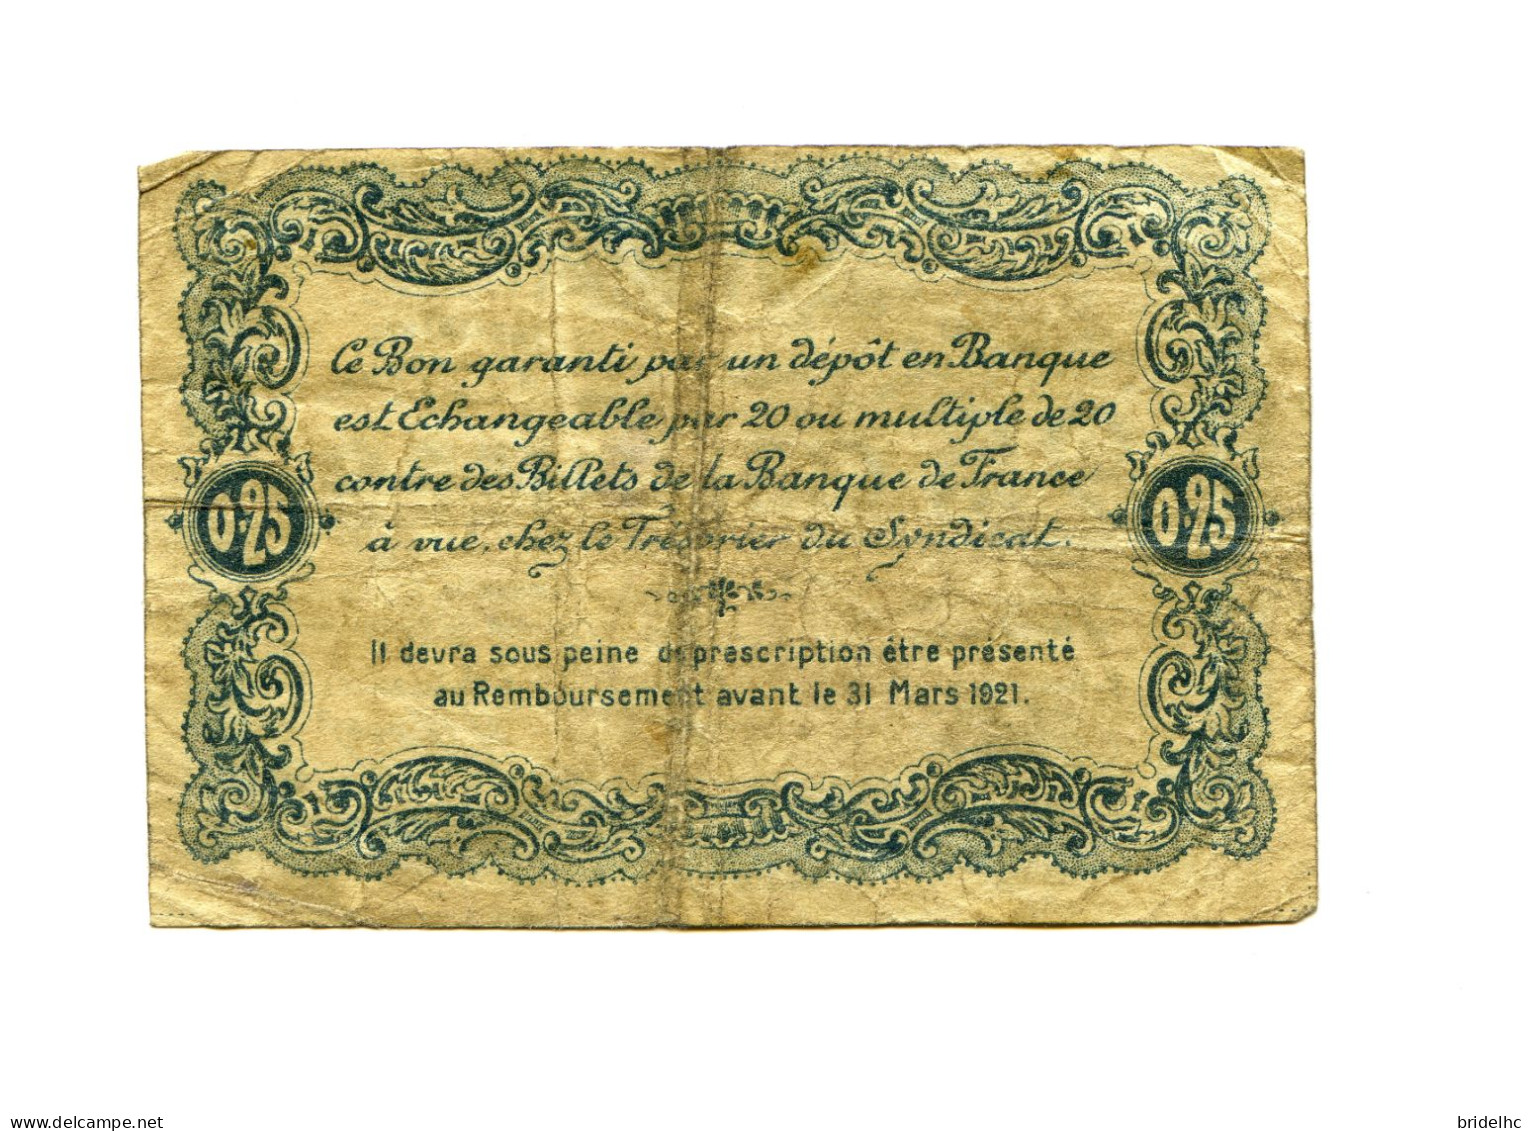 Ce Bon garanti par un dépôt en Banque
est Echangeable par 20 ou multiple de 20
contre des Billets de la Banque de France
à vue, chez le Trésorier du Syndicat.
0.25
0.25
Il devra sous peine de prescription être présenté
au Remboursement avant le 31 Mars 1921.
www.delcampe.net
bridelhc